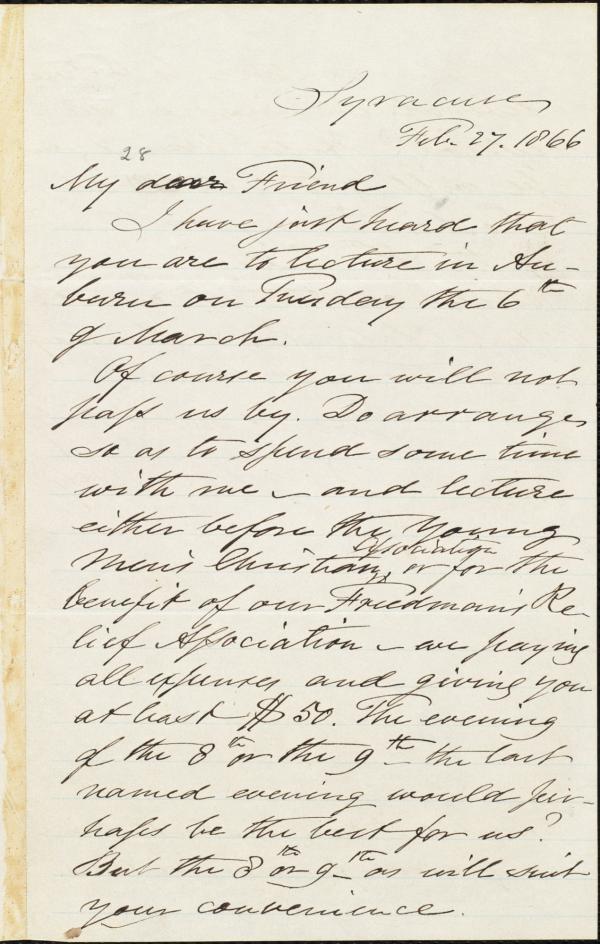 Syracuse
Feb. 27. 1866
28
My dear Friend
I have just heard that
you are to lecture in Au-
burn on Tuesday the 6th
of March.
Of course you will not
pass us by. Do arrange
so as to spend some time
with me – and lecture
either before the Young
Association
Men's Christian, or for the
benefit of our Freedman's Re-
lief Association – we paying
all expenses and giving you
at least $50. The evening
of the 8th or the 9th – the last
named evening would per-
haps be the best for us?
But the 8th or 9th as will suit
your convenience.